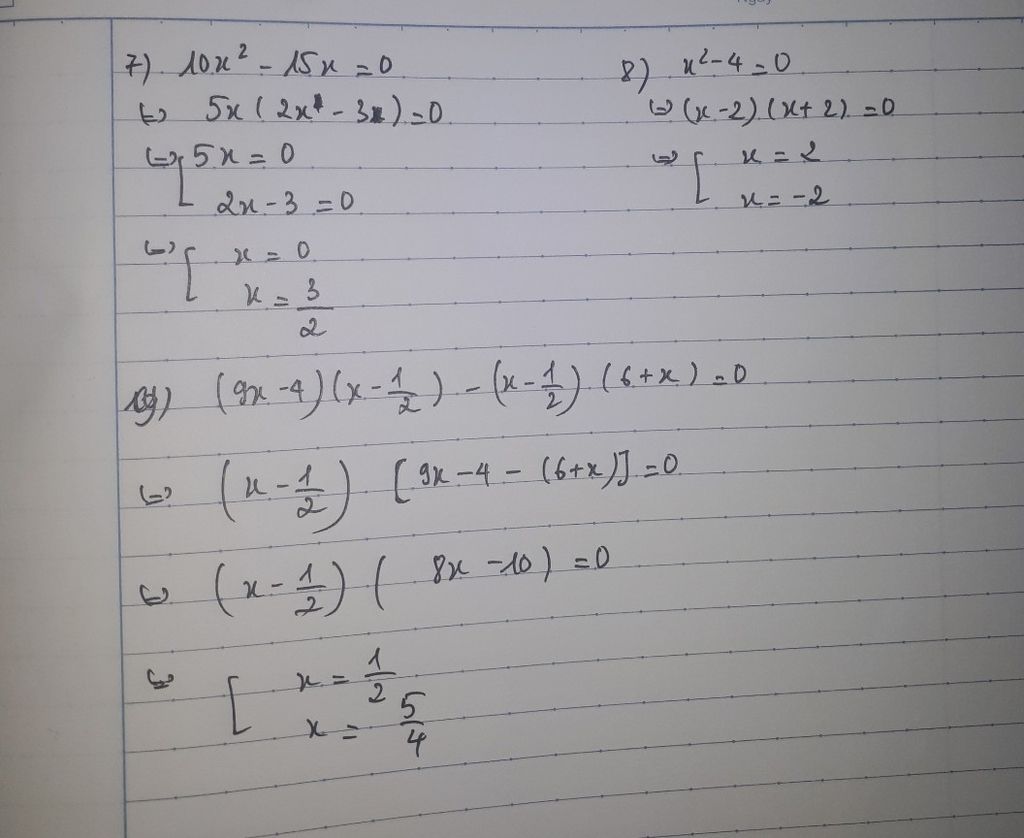 7) 10x² - 15x = 0
⇔ 5x ( 2x - 3 ) = 0
⇔ [ 5x = 0
2x - 3 = 0
⇔ [ x = 0
x = 3/2
8) x² - 4 = 0
⇔ (x - 2) (x + 2) = 0
⇔ [ x = 2
x = -2
9) (9x - 4)(x - 1/2) - (x - 1/2) (6 + x) = 0
⇔ (x - 1/2) [ 9x - 4 - (6 + x)] = 0
⇔ (x - 1/2) ( 8x - 10) = 0
⇔ [ x = 1/2
x = 5/4